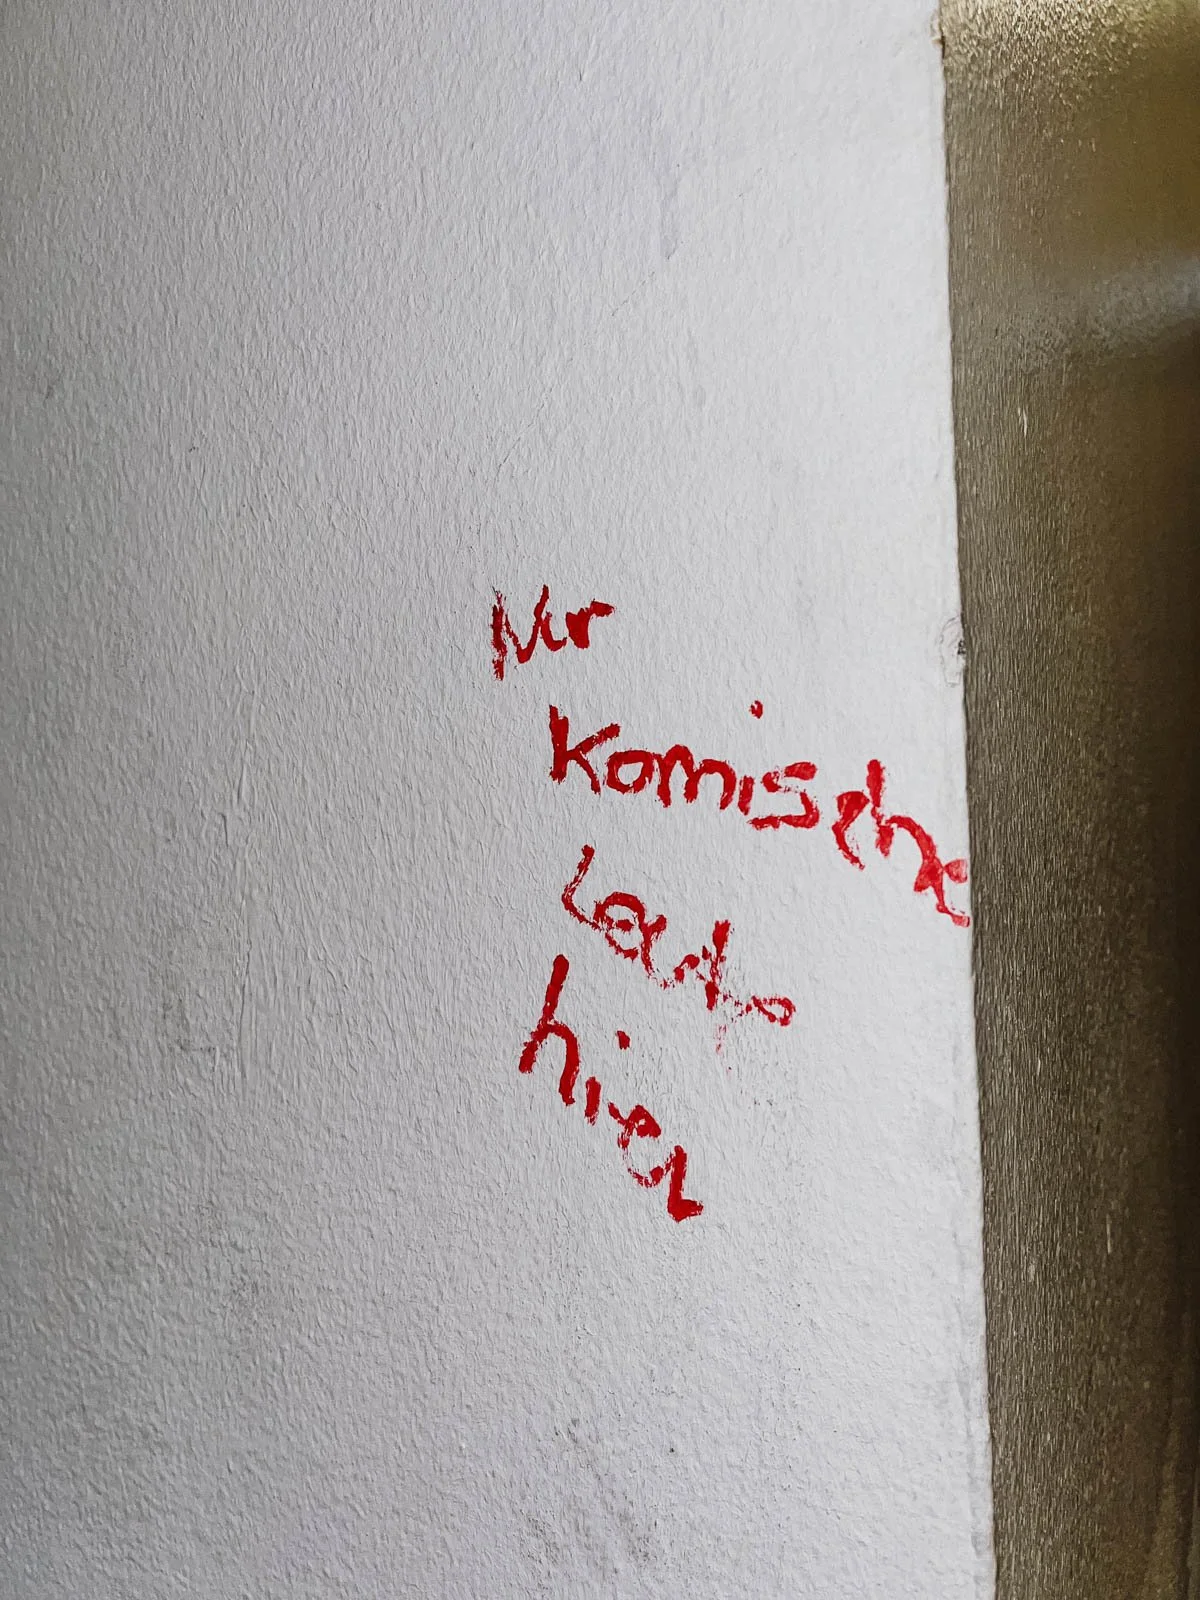 Nur
Komische
Leute
hier